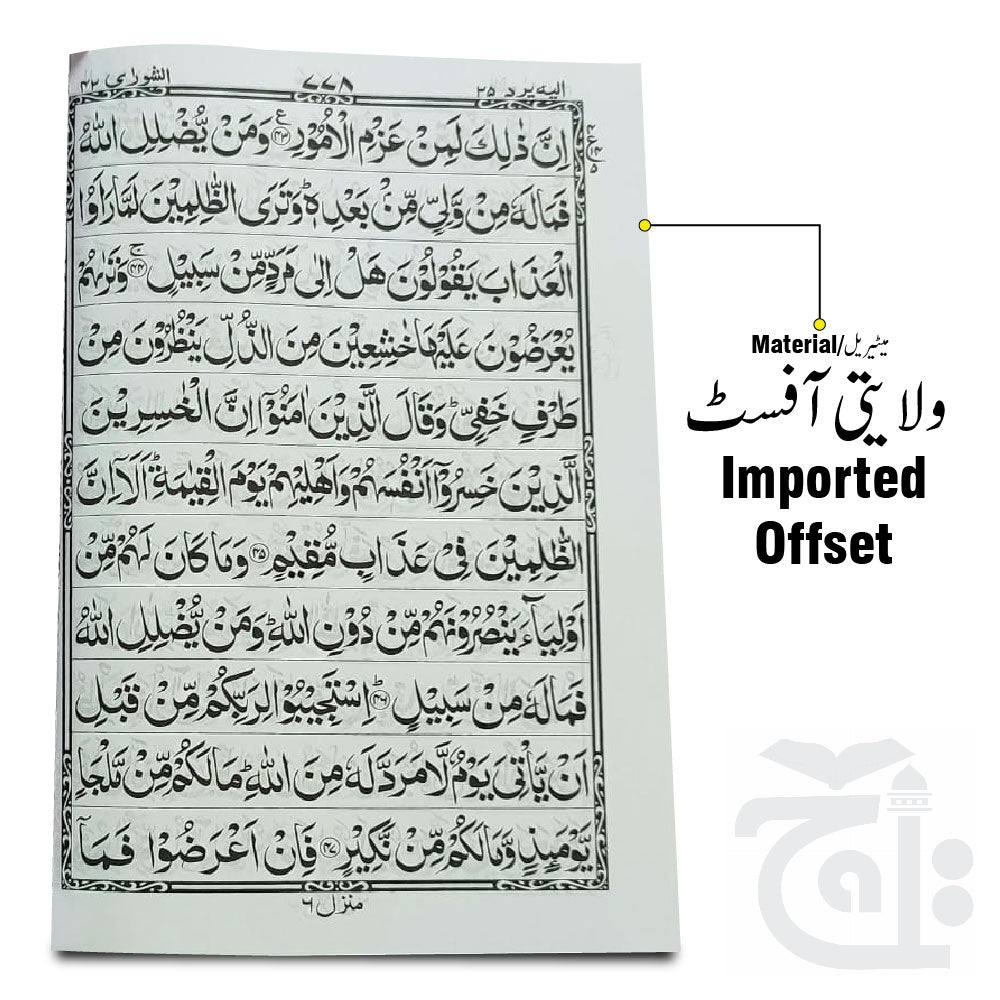 الیه یرد ۲۵ ۷۷۸ الشوری ۴۲
اِنَّ ذٰلِكَ لَمِنْ عَزْمِ الْاُمُوْرِ ۴۳ ع وَمَنْ يُّضْلِلِ اللّٰهُ
فَمَا لَهٗ مِنْ وَّلِيٍّ مِّنْۢ بَعْدِهٖ ؕ وَتَرَى الظّٰلِمِيْنَ لَمَّا رَاَوُا
الْعَذَابَ يَقُوْلُوْنَ هَلْ اِلٰى مَرَدٍّ مِّنْ سَبِيْلٍ ۴۴ ج وَتَرٰىهُمْ
يُعْرَضُوْنَ عَلَيْهَا خٰشِعِيْنَ مِنَ الذُّلِّ يَنْظُرُوْنَ مِنْ
طَرْفٍ خَفِيٍّ ؕ وَقَالَ الَّذِيْنَ اٰمَنُوْۤا اِنَّ الْخٰسِرِيْنَ
الَّذِيْنَ خَسِرُوْۤا اَنْفُسَهُمْ وَاَهْلِيْهِمْ يَوْمَ الْقِيٰمَةِ ؕ اَلَاۤ اِنَّ
الظّٰلِمِيْنَ فِيْ عَذَابٍ مُّقِيْمٍ ۴۵ وَمَا كَانَ لَهُمْ مِّنْ
اَوْلِيَآءَ يَنْصُرُوْنَهُمْ مِّنْ دُوْنِ اللّٰهِ ؕ وَمَنْ يُّضْلِلِ اللّٰهُ
فَمَا لَهٗ مِنْ سَبِيْلٍ ۴۶ ؕ اِسْتَجِيْبُوْا لِرَبِّكُمْ مِّنْ قَبْلِ
اَنْ يَّاْتِيَ يَوْمٌ لَّا مَرَدَّ لَهٗ مِنَ اللّٰهِ ؕ مَا لَكُمْ مِّنْ مَّلْجَاٍ
يَّوْمَىِٕذٍ وَّمَا لَكُمْ مِّنْ نَّكِيْرٍ ۴۷ فَاِنْ اَعْرَضُوْا فَمَاۤ
منزل ۶
Material/میٹیریل
ولایتی آفسٹ
Imported
Offset